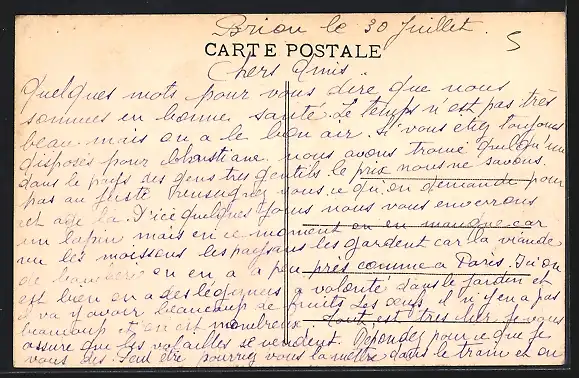 Brion le 30 Juillet
5
CARTE POSTALE
Chers Amis.
Quelques mots pour vous dire que nous
sommes en bonne santé. Le temps n'est pas très
beau mais on a le bon air. Si vous etiez toujours
disposés pour Christiane nous avons trouvé quelqu'un
dans le pays des gens tres gentils le prix nous ne savons
pas au juste renseignez vous ce qu'on demande pour
cet age la. D'ici quelques jours nous vous enverrons
un lapin mais en ce moment on en manque car
vu les moissons les paysans les gardent car la viande
de boucherie on en a a peu près comme a Paris. Ici on
est bien on a des légumes a volonté dans le jardin et
il va y avoir beaucoup de fruits Les œufs il n'y en a pas
beaucoup et on est nombreux tout est tres cher Je vous
assure que les volailles se vendent. Répondez pour ce que je
vous dis. Peut être pourrez vous la mettre dans le train et on